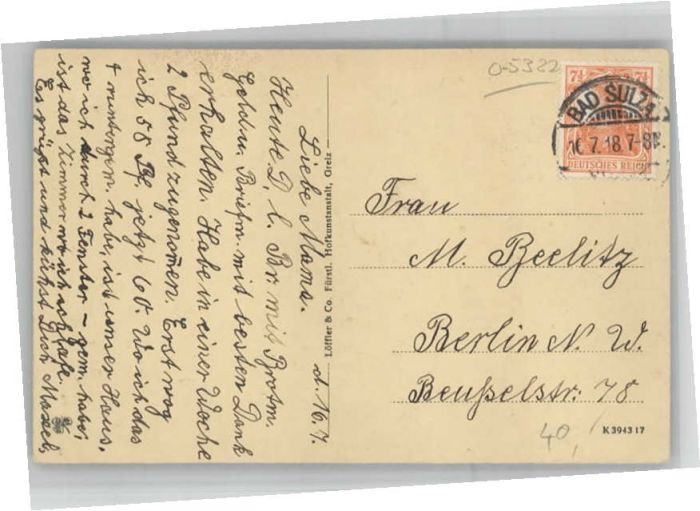 d. 16.7.
Liebe Mama.
Heute D. l. Br. mit Brotm.
Geld u. Briefm. mit besten Dank
erhalten. Habe in einer Woche
2 Pfund zugenom̅en. Erst wog
ich 58 Pf. jetzt 60. Wo ich das
+ runtergem. habe, ist unser Haus,
wo ich durch 2 Fenster – gem. habe,
ist das Zimmer wo ich schlafe.
Es grüßt und küßt Dich
Löffler & Co. Fürstl. Hofkunstanstalt, Greiz
0-5322
7½ 7½
DEUTSCHES REICH
BAD SULZA
16.7.18.7-8N
Frau
M. Beelitz
Berlin N. W.
Beußelstr. 78
40,
K 3943 17